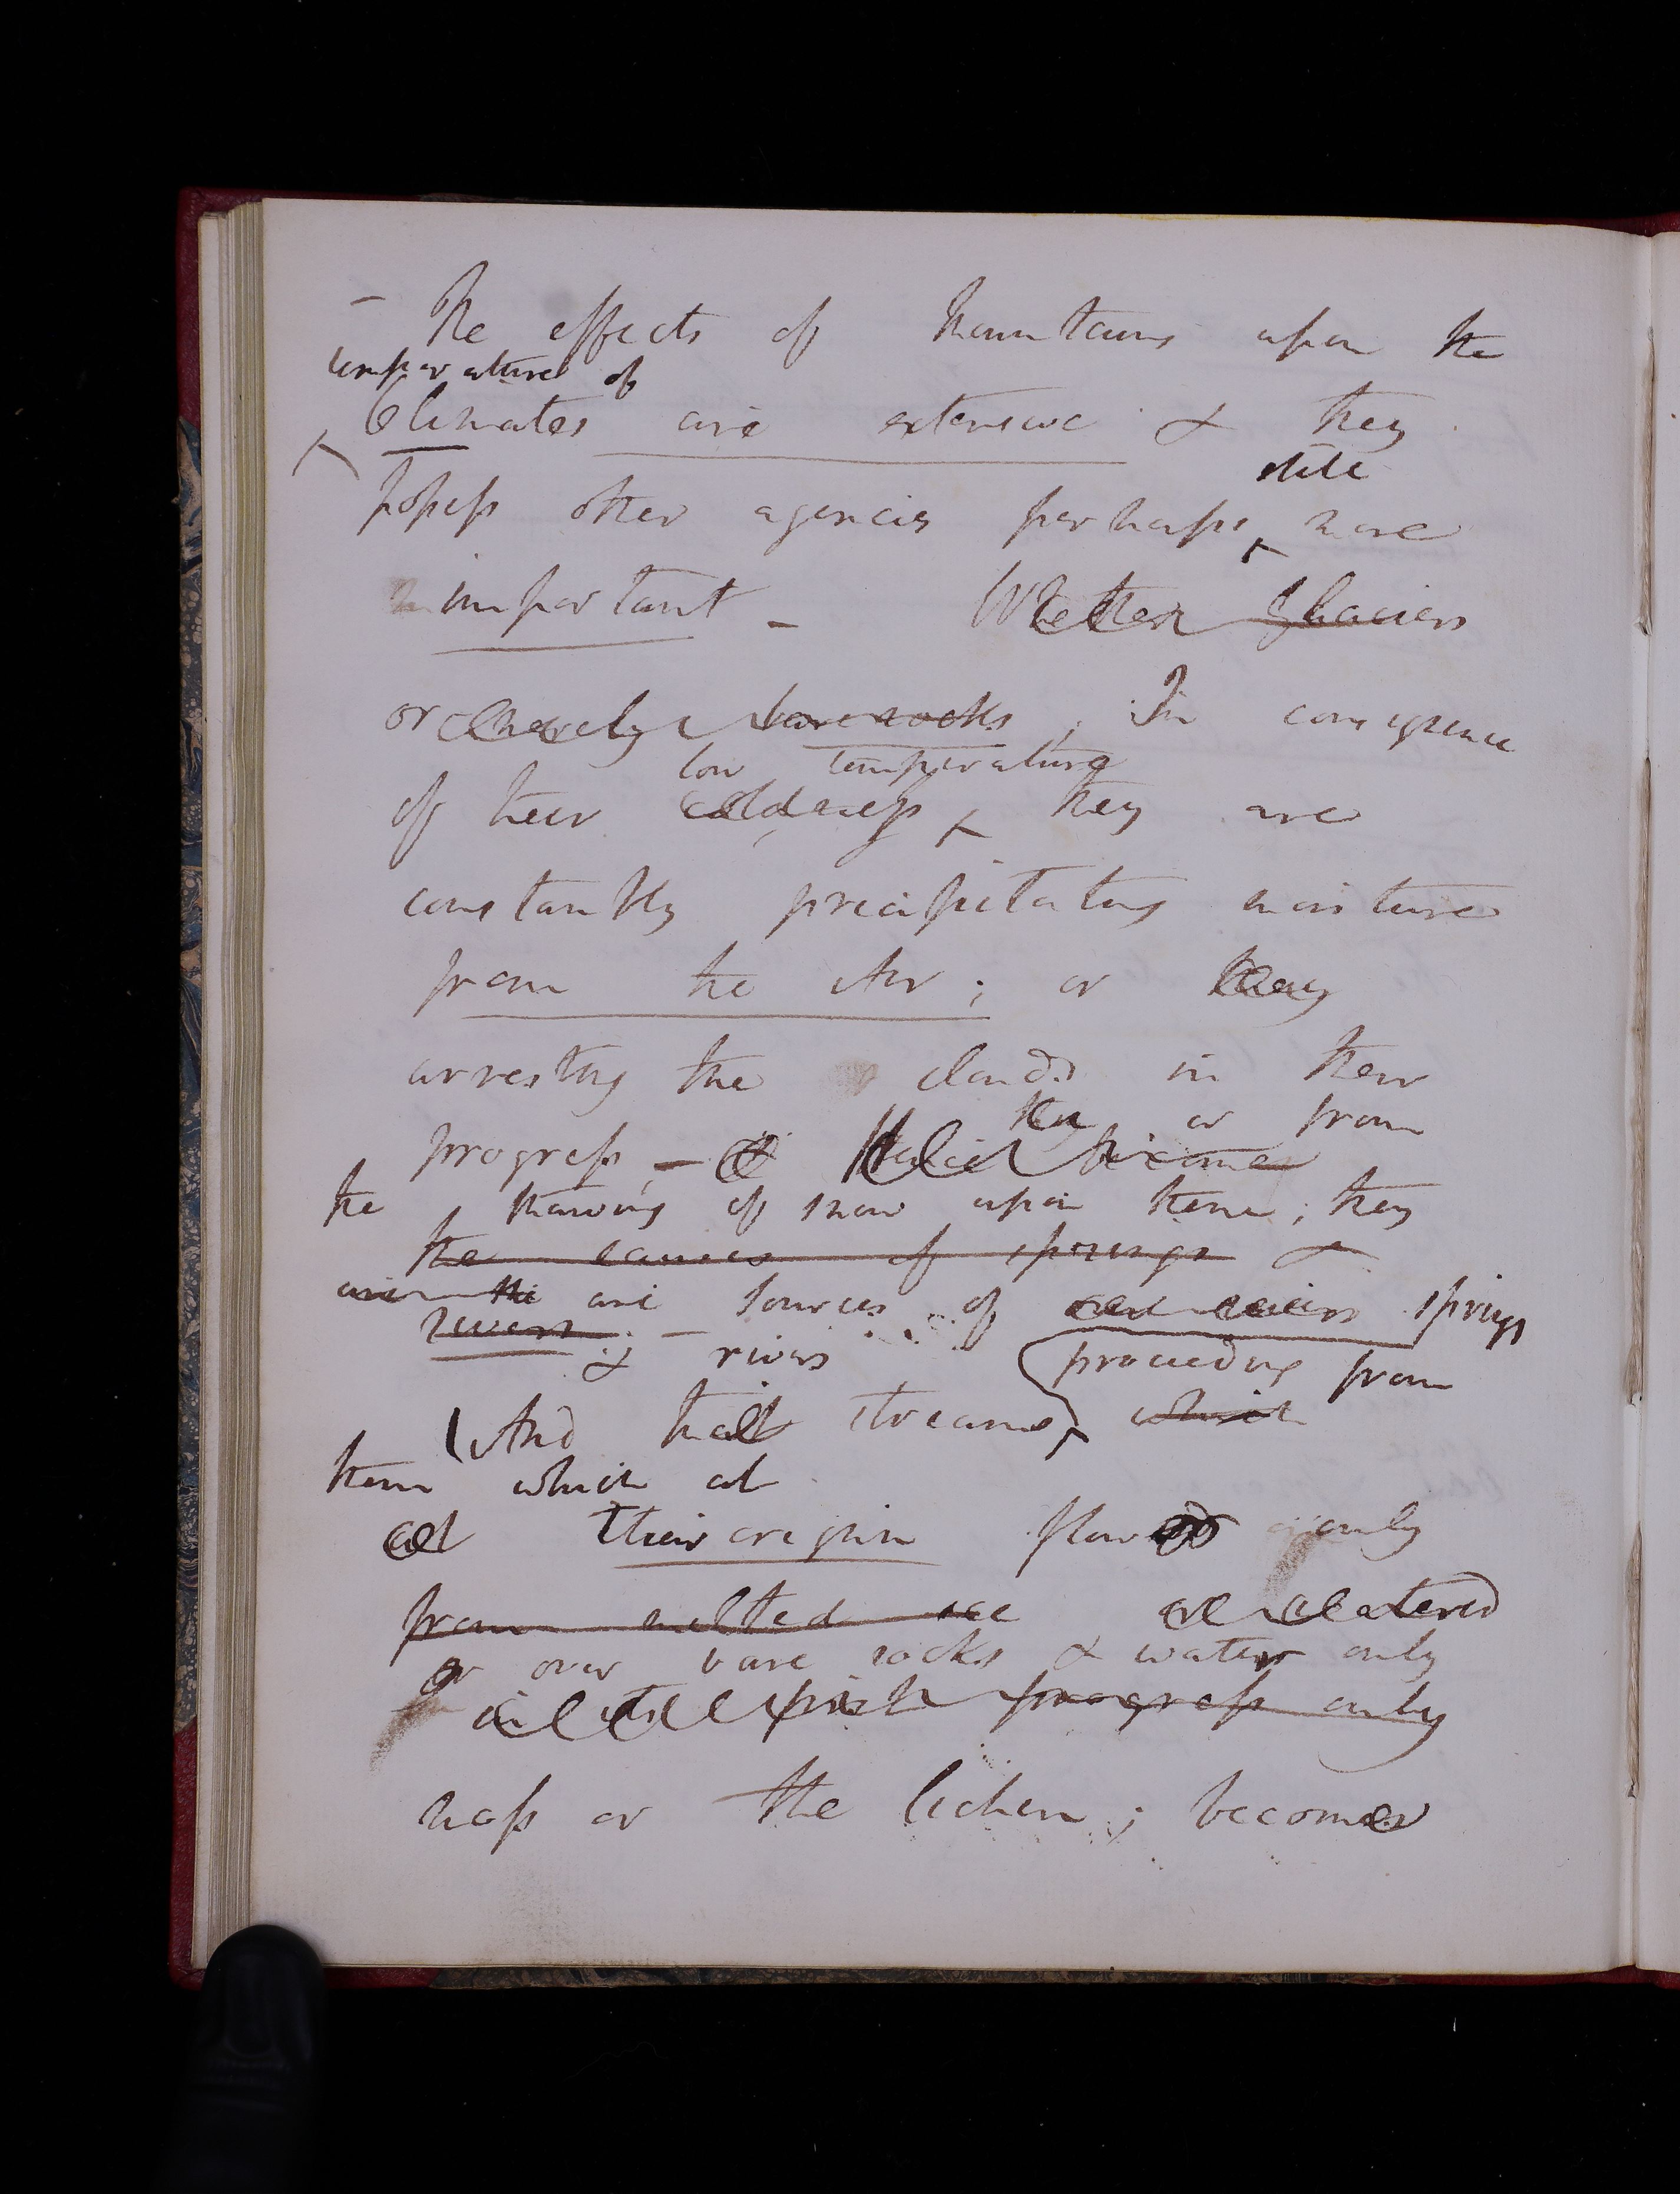 - The effects of Mountains upon the
temperature of
Climates are extensive & they
still
possess other agencies perhaps more
important - Whether Glaciers
or merely bare rocks. In consequence
low temperature
of their coldness they are
constantly precipitating moisture
from the Air; or they
arresting the clouds in their
they or from
progress, - & which become
the thawing of snow upon them; they
the causes of springs &
are the are sources of springs
rivers. -
& rivers proceeding from
And that streams which
them which at
at their origin flow only
from melted ice watered
or over bare rocks & water only
in its first progress only
moss or the lichen; become